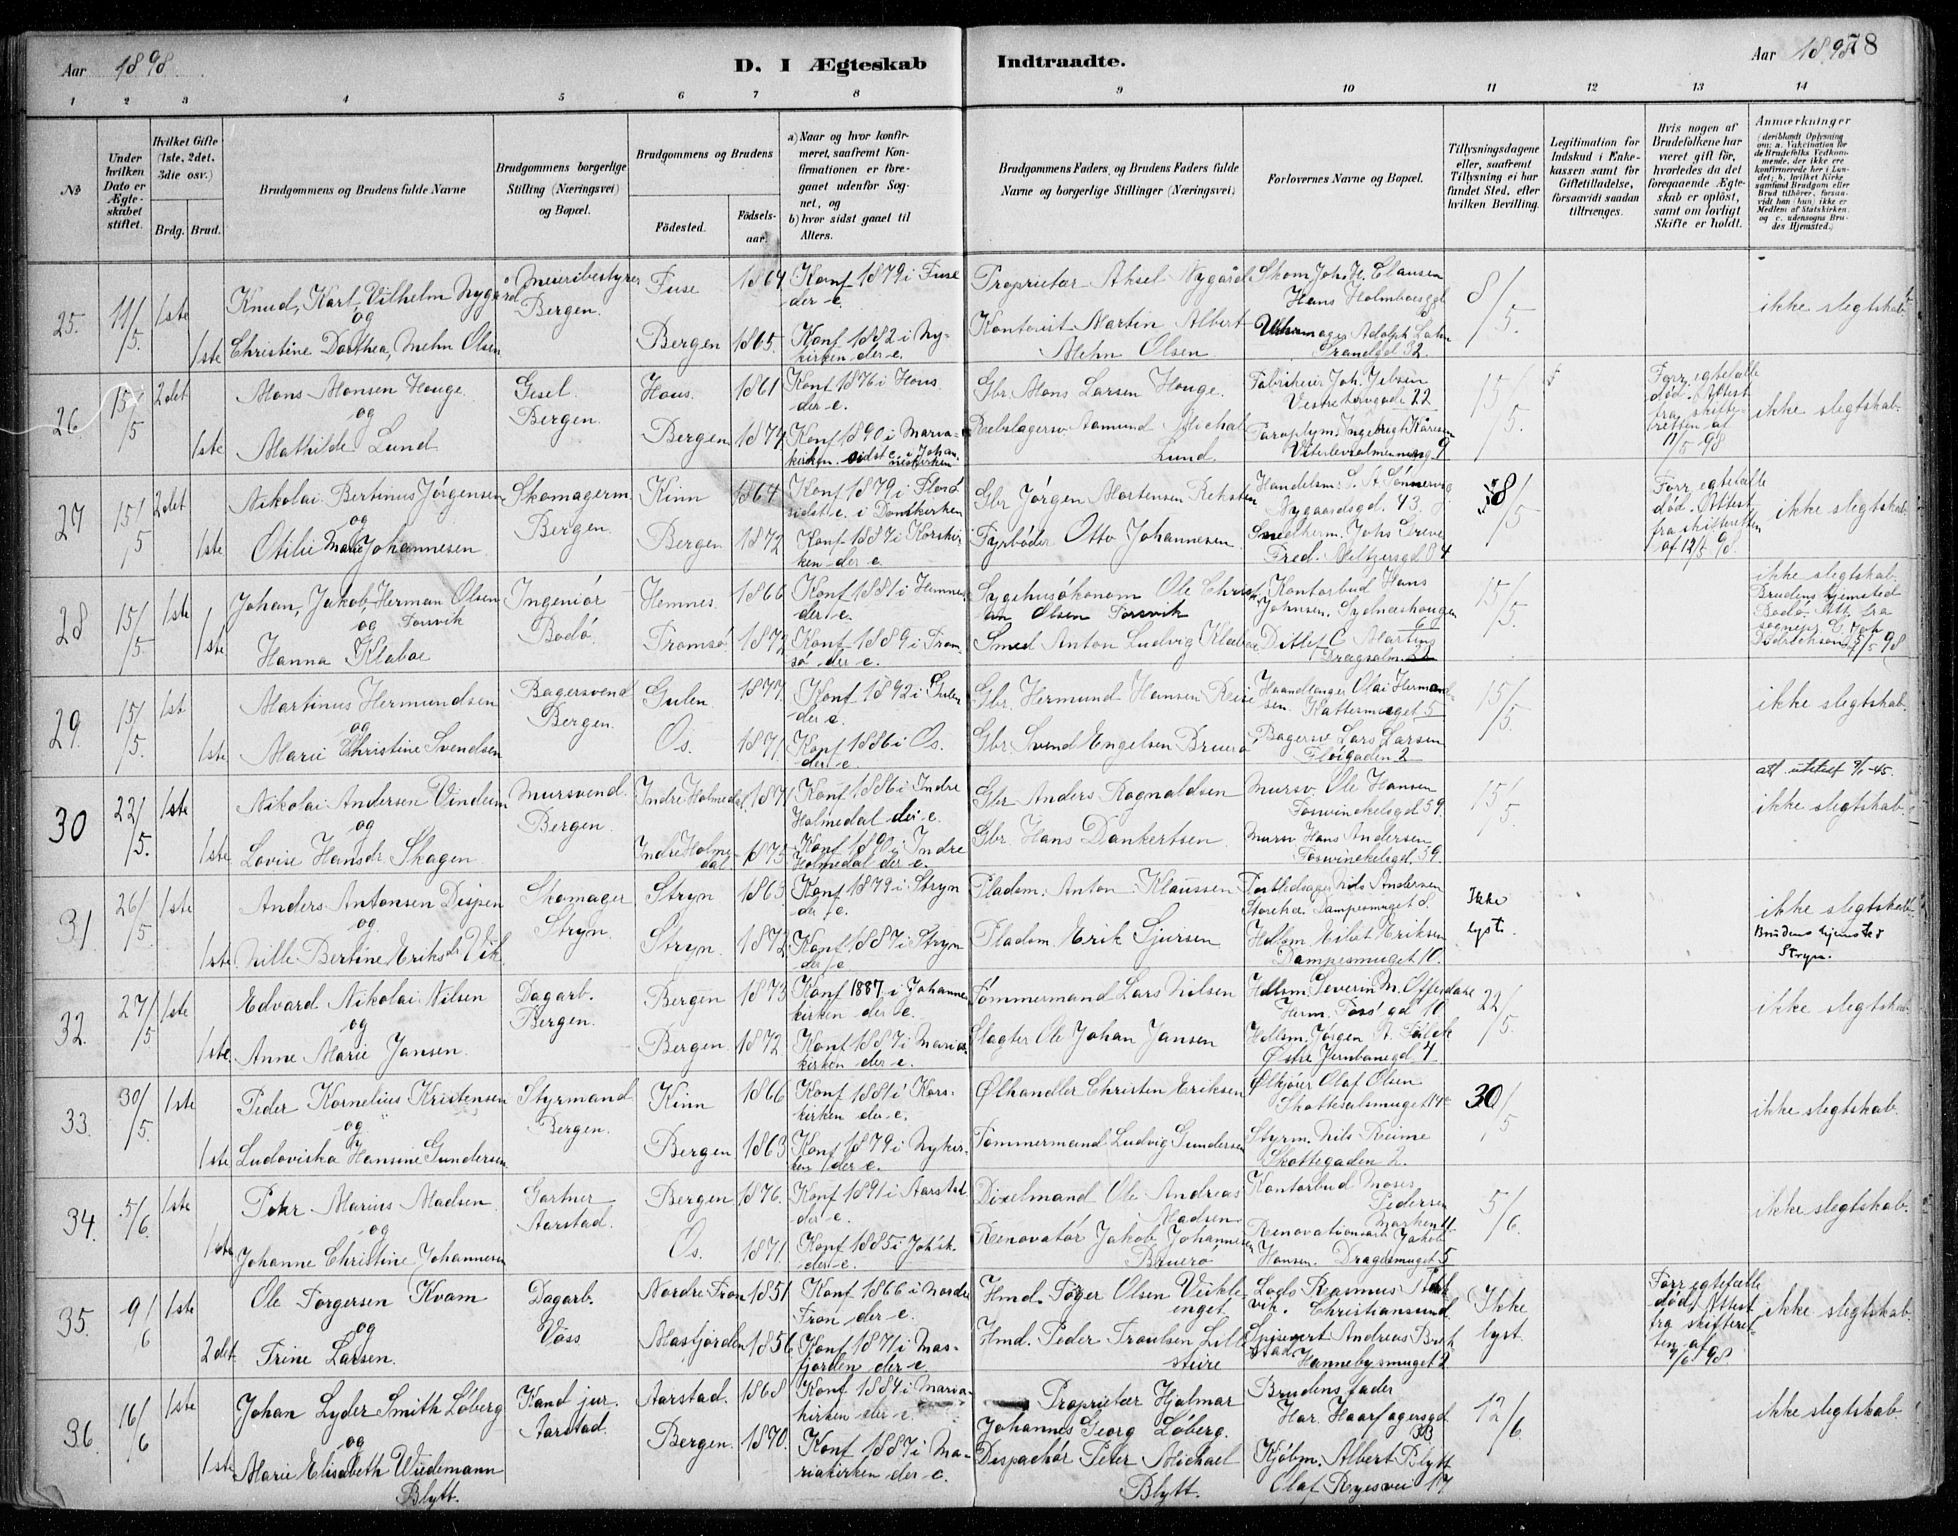 Aar 1898.
D. I Ægteskab Indtraadte.
Aar 1898
78
1 2 3 4 5 6 7 8 9 10 11 12 13 14
No
Under hvilken Dato er Ægteskabet stiftet.
Hvilket Gifte (1ste, 2det, 3die osv.)
Brdg. Brud.
Brudgommens og Brudens fulde Navne
Brudgommens borgerlige Stilling (Næringsvei) og Bopæl.
Brudgommens og Brudens
Födested.
Födselsaar.
a) Naar og hvor konfirmeret, saafremt Konfirmationen er foregaaet udenfor Sognet, og
b) hvor sidst gaaet til Alters.
Brudgommens Faders og Brudens Faders fulde Navne og borgerlige Stillinger (Næringsvei)
Forlovernes Navne og Bopæl.
Tillysningsdagene eller, saafremt Tillysning ei har fundet Sted, efter hvilken Bevilling.
Legitimation for Indskud i Enkekassen samt for Giftetilladelse, forsaavidt saadan tiltrænges.
Hvis nogen af Brudefolkene har været gift før, hvorledes da det foregaaende Ægteskab er opløst, samt om lovligt Skifte er holdt.
Anmærkninger
(deriblandt Oplysning om: a. Vakcination for de Brudefolks Vedkommende, der ikke ere konfirmerede her i Landet; b. hvilket Kirkesamfund Brudgom eller Brud tilhører, forsaavidt han (hun) ikke er Medlem af Statskirken, og c. udensogns Brudes Hjemsted.)
25. 11/5. 1ste Knud, Karl, Vilhelm Nygard Meieribestyrer Fuse 1864 Konf 1879 i Fuse Proprietær Aksel Nygård Skom Johs H. Clausen 8/5. ikke slegtskab.
og Bergen. der e. Hans Holmboesgd
1ste Christine Dorthea, Mehn Olsen Bergen 1865. Konf 1882 i Nykirken der e. Kontorist Martin Albert Mehn Olsen Adolph Strandgd 32.
26 15/5 2det Mons Monsen Hauge Gesel. Haus. 1861 Konf 1876 i Haus. der e. Gbr. Mons Larsen Hauge. Fabrikeier Joh. Jebsen Vestre Torvgade 22 15/5. Forr. egtefælle død. Attest fra skifteretten af 11/5 98 ikke slegtskab.
og Bergen.
1ste Mathilde Lund Bergen 1874 Konf 1890 i Mariakirken. sidst e. i Johanneskirken Rebslagersv. Aamund Michal Lund. Paraplym. Ingebrigt Vetrlevsalmenning 9
27 15/5 2det Nikolai Bertinus Jörgensen Skomagerm. Kinn 1864 Konf 1879 i Florö sidst e. i Domkirken Gbr Jörgen Mortensen Reksten Handelsm. S. A. Nygaardsgd. 43. 8/5 Forr. egtefælle død. Attest fra skifteretten af 12/5 98. ikke slegtskab.
og Bergen.
1ste Otilie Marie Johannesen Bergen 1872 Konf 1887 i Korskirken der e. Fyrböder Otto Johannesen Smedherm. Johs Fred. Meltzersgd 84
28 15/5 1ste Johan, Jakob, Herman Olsen Forsvik Ingeniör Hemnes. 1866 Konf 1881 i Hemnes der e. Sygehusökonom Ole Christian Olsen Forsvik Kontorbud Hans Johnsen. Sydneshaugen 15/5. ikke slegtskab. Brudens hjemsted Bodö. Att. fra sognepr.
og Bodö.
1ste Hanna Klaboe Tromsö 1873 Konf 1889 i Tromsö der e. Smed Anton Ludvig Klaboe Ditlef C Martins Dragsalm. 22 15/5 98
29. 15/5. 1ste Martinus Hermundsen Bagersvend Gulen 1877. Konf 1892 i Gulen der e. Gbr. Hermund Hansen Haandlanger Olai Hermandsen. Kattesmuget 5 15/5 ikke slegtskab.
og Bergen.
1ste Marie Christine Svendsen Os. 1871 Konf 1886 i Os. der e. Gbr. Svend Engelsen Bruerö Bagersv Lars Larsen Flöigaden 2
30 22/5. 1ste Nikolai Andersen Vindum Mursvend. Indre Holmedal 1871 Konf 1886 i Indre Holmedal der e. Gbr Anders Rognaldsen Mursv. Ole Hansen Fosvinckelsgd 59. 15/5 att utsted -45. ikke slegtskab.
og Bergen.
1ste Lovise Hansdr Skagen Indre Holmedal 1875 Konf 1890 i Indre Holmedal der e. Gbr. Hans Dankertsen Mursv Hans Andersen Fosvinckelsgd. 59.
31 26/5. 1ste Anders Antonsen Dispen Skomager Stryn 1863 Konf 1879 i Stryn der e. Pladsm. Anton Klaussen Nils Andersen Dampesmuget 8 Ikke lyst. ikke slegtskab. Brudens hjemsted Stryn.
og Stryn.
1ste Nille Bertine Eriksdr Vik. Stryn. 1872 Konf 1887 i Stryn der e Pladsm. Erik Sjursen Hellsm. Eilat Eriksen Dampesmuget 10.
32. 27/5 1ste Edvard Nikolai Nilsen Dagarb. Bergen 1873 Konf 1887 i Johanneskirken der e. Tömmermand Lars Nilsen Hellsm. Severin M. Offerdahl Herm. Foss' gd 10 22/5. ikke slegtskab.
og Bergen.
1ste Anne Marie Jansen. Bergen 1872 Konf 1887 i Mariakirken der e. Slagter Ole Johan Jansen Hellsm. Jörgen A. Östre Jernbanegd 4
33. 30/5. 1ste Peder Kornelius Kristensen Styrmand Kinn 1866 Konf 1881 i Korskirken der e. Ølhandler Christen Eriksen Ølkjører Olaf Olsen Skottesalsmuget 14 30/5 ikke slegtskab.
og Bergen.
1ste Ludoviska Hansine Gundersen Bergen 1863 Konf 1879 i Nykirken der e. Tömmermand Ludvig Gundersen Styrm. Nils Reime Skottegaden 2.
34. 5/6. 1ste Peter Marius Madsen Gartner Bergen 1876. Konf 1891 i Aarstad. der e. Dixelmand Ole Andreas Madsen Kontorbud Moses Pedersen Marken 11 5/6. ikke slegtskab.
og Aarstad.
1ste Johanne Christine Johannesen Os. 1871 Konf 1885 i Joh'sk. der e. Renovatör Jakob Johannesen Bruerö Renovationsarb Jakob Hansen. Dragesmuget 5
35. 9/6 1ste Ole Torgersen Kvam Dagarb. Nordre Fron 1851 Konf 1866 i Nordre Fron der e. Hmd. Töger Olsen Veikleenget. Lods Rasmus Christiansund. Ikke lyst. Forr. egtefælle død, Attest fra skifteretten af 98 ikke slegtskab.
og Voss
2det Trine Larsen. Masfjorden 1856 Konf 1871 i Masfjorden der e. Hmd. Peder Troulsen Spisevert Andreas Hannebysmuget 2
36. 16/6 1ste Johan Lyder Smith Löberg Kand jur. Aarstad. 1868 Konf 1884 i Mariakirken der e. Proprietær Hjalmar Johannes Georg Löberg. Brudens fader Har. Haarfagersgd. 12/6 ikke slegtskab
og Aarstad.
1ste Marie Elisabeth Wiedemann Blytt. Bergen. 1870. Konf 1887 i Mariakirken der e. Dispachör Peter Michael Blytt. Kjöbm. Albert Blytt Olaf Ryesvei 17